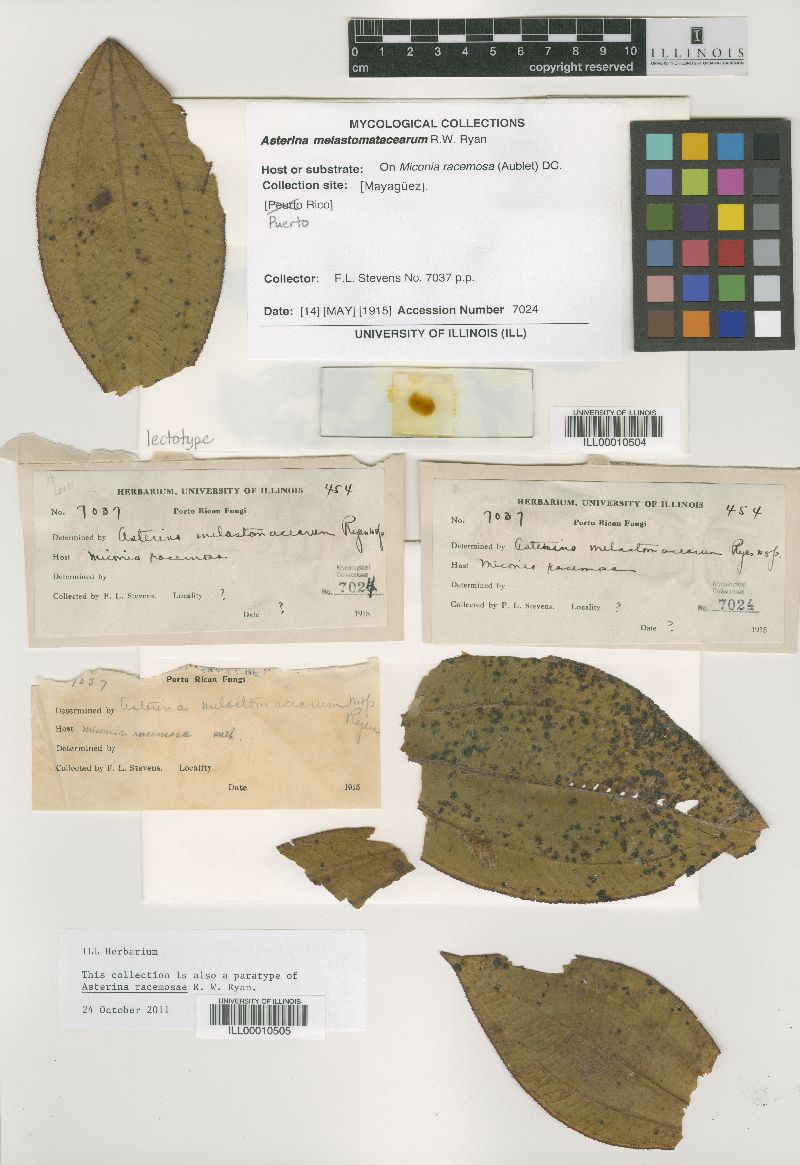 0 1 2 3 4 5 6 7 8 9 10
cm
copyright reserved
I
ILLINOIS
MYCOLOGICAL COLLECTIONS
Asterina melastomatacearum R.W. Ryan
Host or substrate: On Miconia racemosa (Aublet) DC.
Collection site: [Mayagüez].
[Peurto Rico]
Puerto
Collector: F.L. Stevens No. 7037 p.p.
Date: [14] [MAY] [1915] Accession Number 7024
UNIVERSITY OF ILLINOIS (ILL)
lectotype
UNIVERSITY OF ILLINOIS
ILL00010504
HERBARIUM, UNIVERSITY OF ILLINOIS 454
No. 7037 Porto Rican Fungi
Determined by Asterina melastomacearum Ryan n sp.
Host Miconia racemosa
Determined by
Mycological
Collections
No. 7024
Collected by F. L. Stevens. Locality ?
Date ? 1915
HERBARIUM, UNIVERSITY OF ILLINOIS 454
No. 7037 Porto Rican Fungi
Determined by Asterina melastomacearum Ryan n sp.
Host Miconia racemosa
Determined by
Mycological
Collections
No. 7024
Collected by F. L. Stevens. Locality ?
Date ? 1915
7037 Porto Rican Fungi
Determined by Asterina melastomacearum n sp
Ryan
Host Miconia racemosa
Determined by
Collected by F. L. Stevens. Locality
Date 1915
ILL Herbarium
This collection is also a paratype of
Asterina racemosae R. W. Ryan.
24 October 2011
UNIVERSITY OF ILLINOIS
ILL00010505